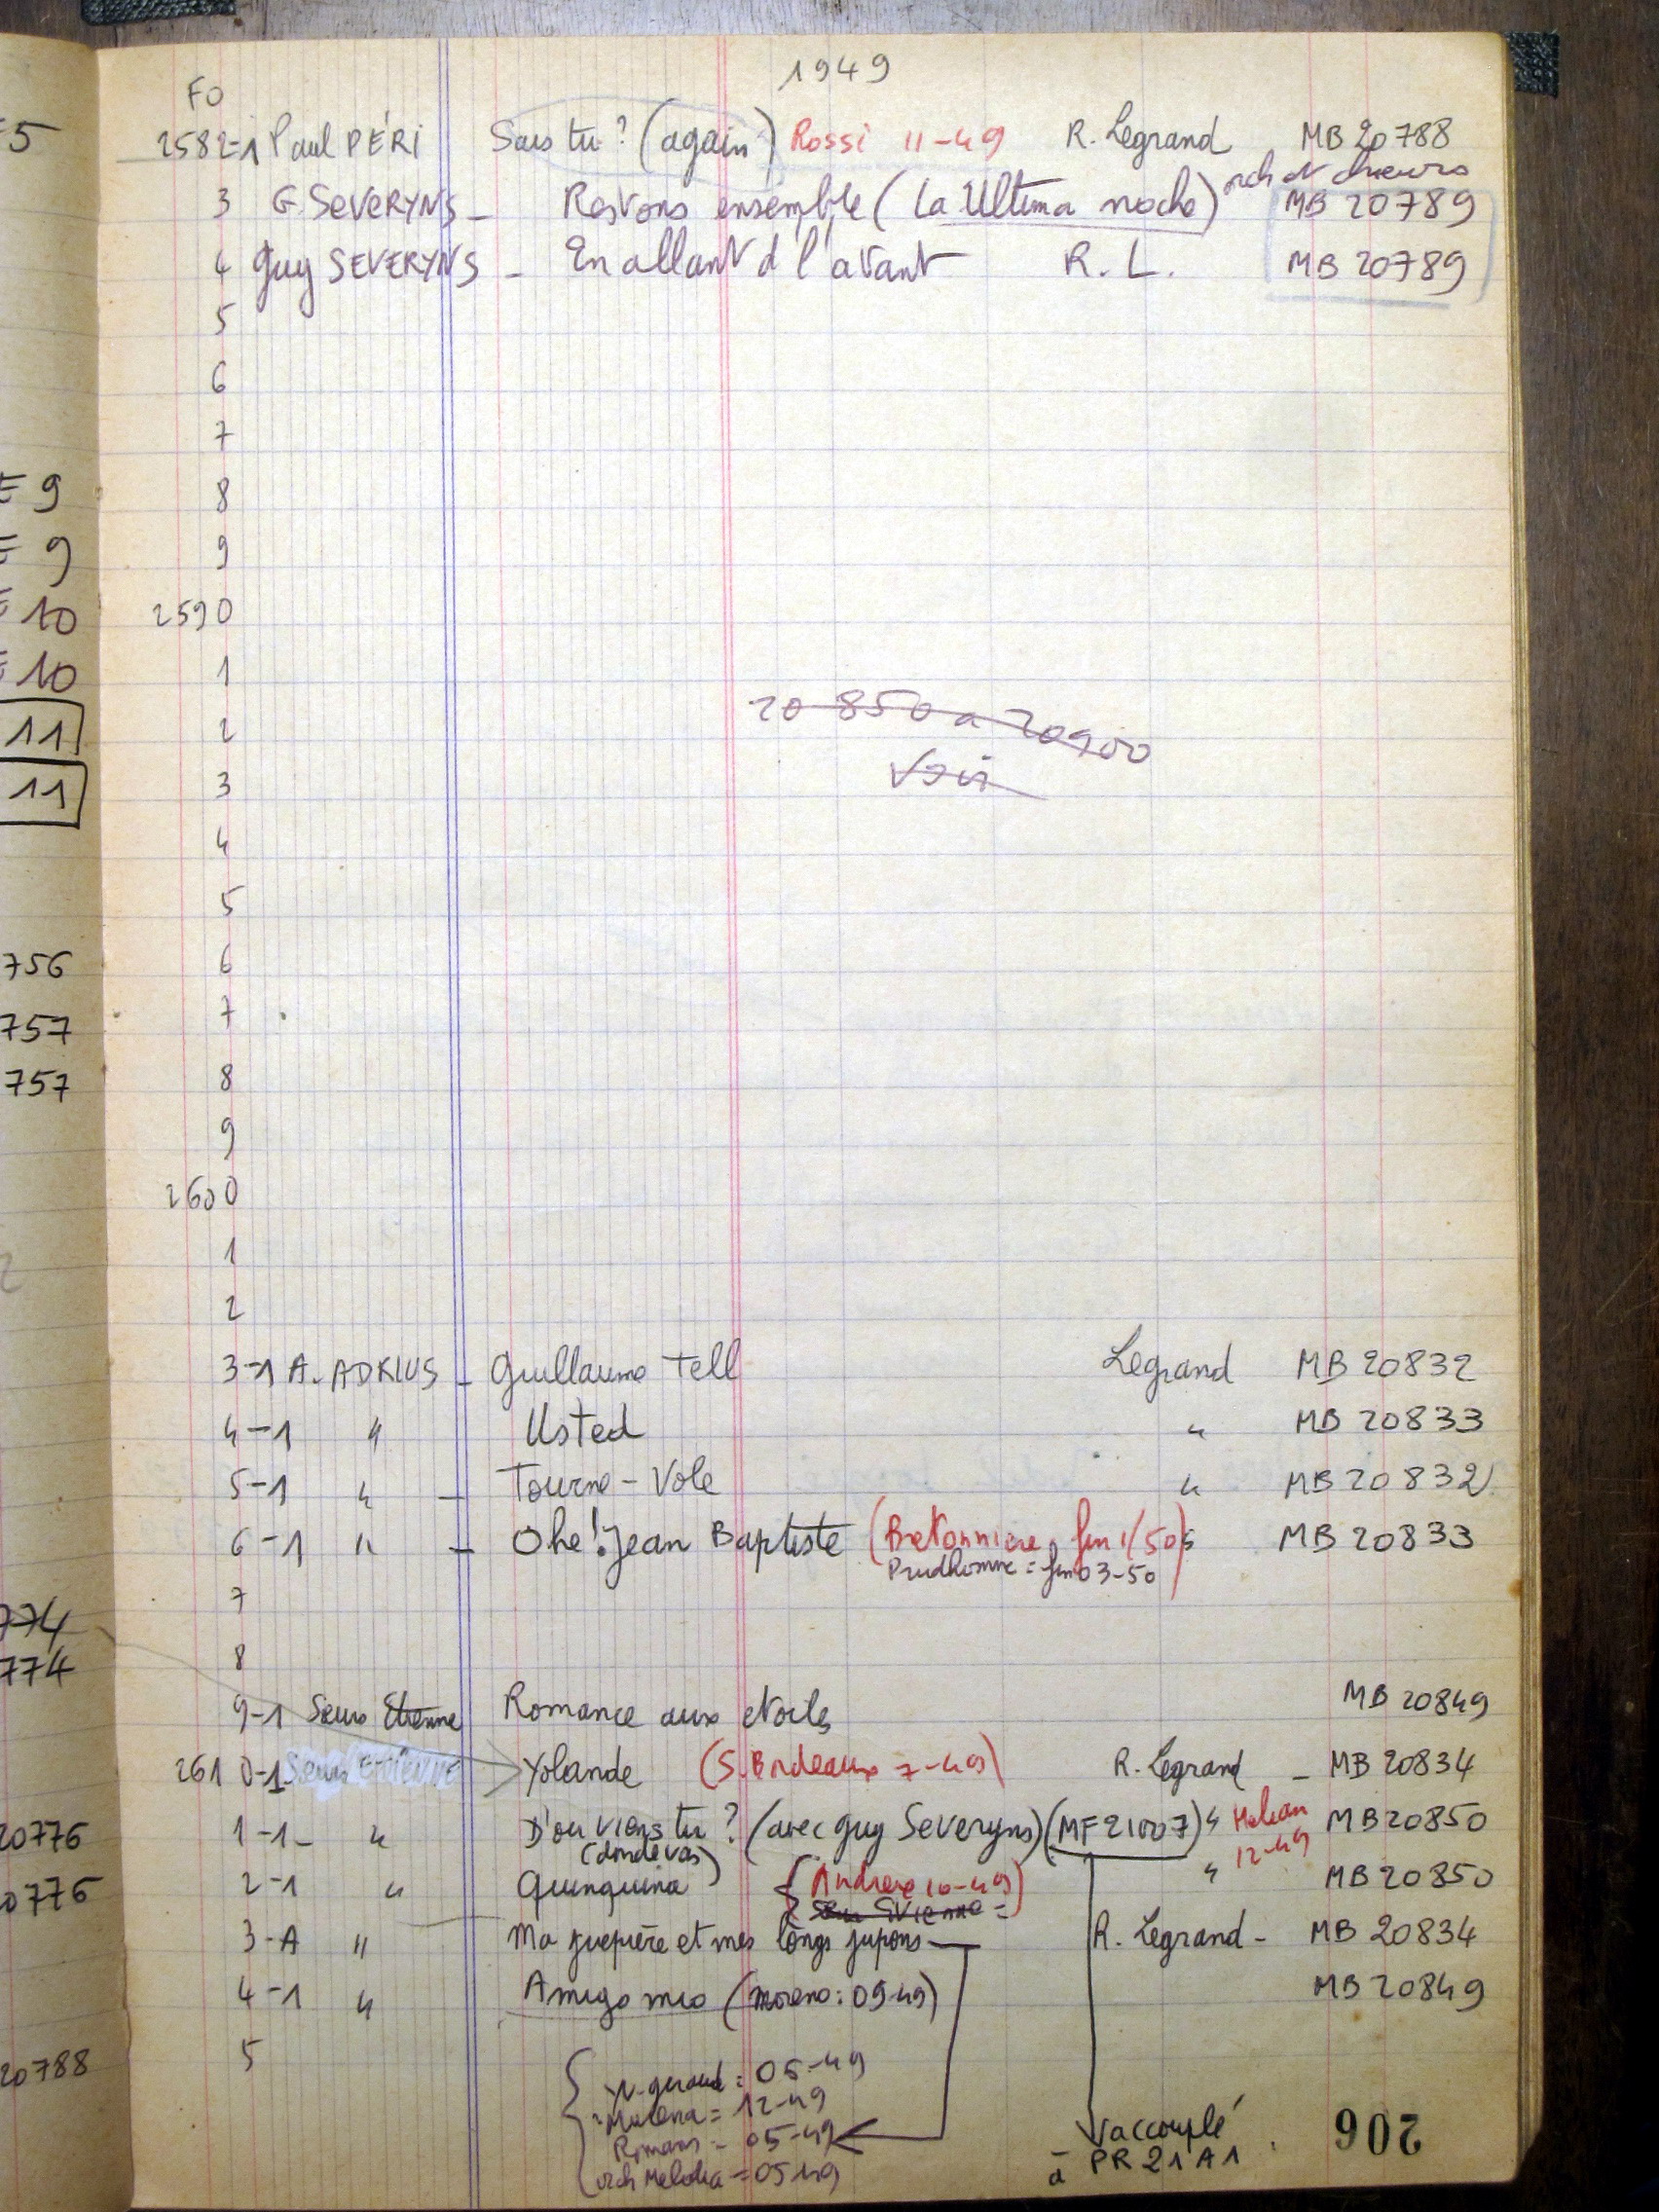 1949
FO
2582-1 Paul PÉRI Sais tu? (again) Rossi 11-49 R. Legrand MB 20788
3 G. SEVERYNS - Restons ensemble (La Ultima noche) orch et chœurs MB 20789
4 Guy SEVERYNS - En allant d l'avant R. L. MB 20789
5
6
7
8
9
2590
1
2 20 850 a 20900
3 Voir
4
5
6
7
8
9
2600
1
2
3-1 A. ADRIUS - Guillaume Tell Legrand MB 20832
4-1 " Usted " MB 20833
5-1 " - Tourne-Vole " MB 20832
6-1 " - Ohe! Jean Baptiste (Bretonniere, fin 1/50) " MB 20833
Prudhomme = fin 03-50
7
8
9-1 Sœurs Etienne Romance aux etoiles MB 20849
2610-1 Sœurs ETIENNE Yolande (S. Bordeaux 7-49) R. Legrand - MB 20834
1-1- " D'ou viens tu? (avec Guy Severyns) (MF 21007) " 12-49 MB 20850
(donde vas)
2-1 " Quinquina (Andrex 10-49) " MB 20850
Sœurs Etienne =
3-A " Ma guepière et mes longs jupons R. Legrand - MB 20834
4-1 " Amigo mio (Moreno: 09-49) MB 20849
5
Y. Giraud = 05-49
= 12-49
Romans = 05-49
orch Melodia = 05 49
raccouplé
à PR 21 A1
206
5
= 9
= 9
= 10
= 10
11
11
756
757
757
774
774
20776
20776
20788